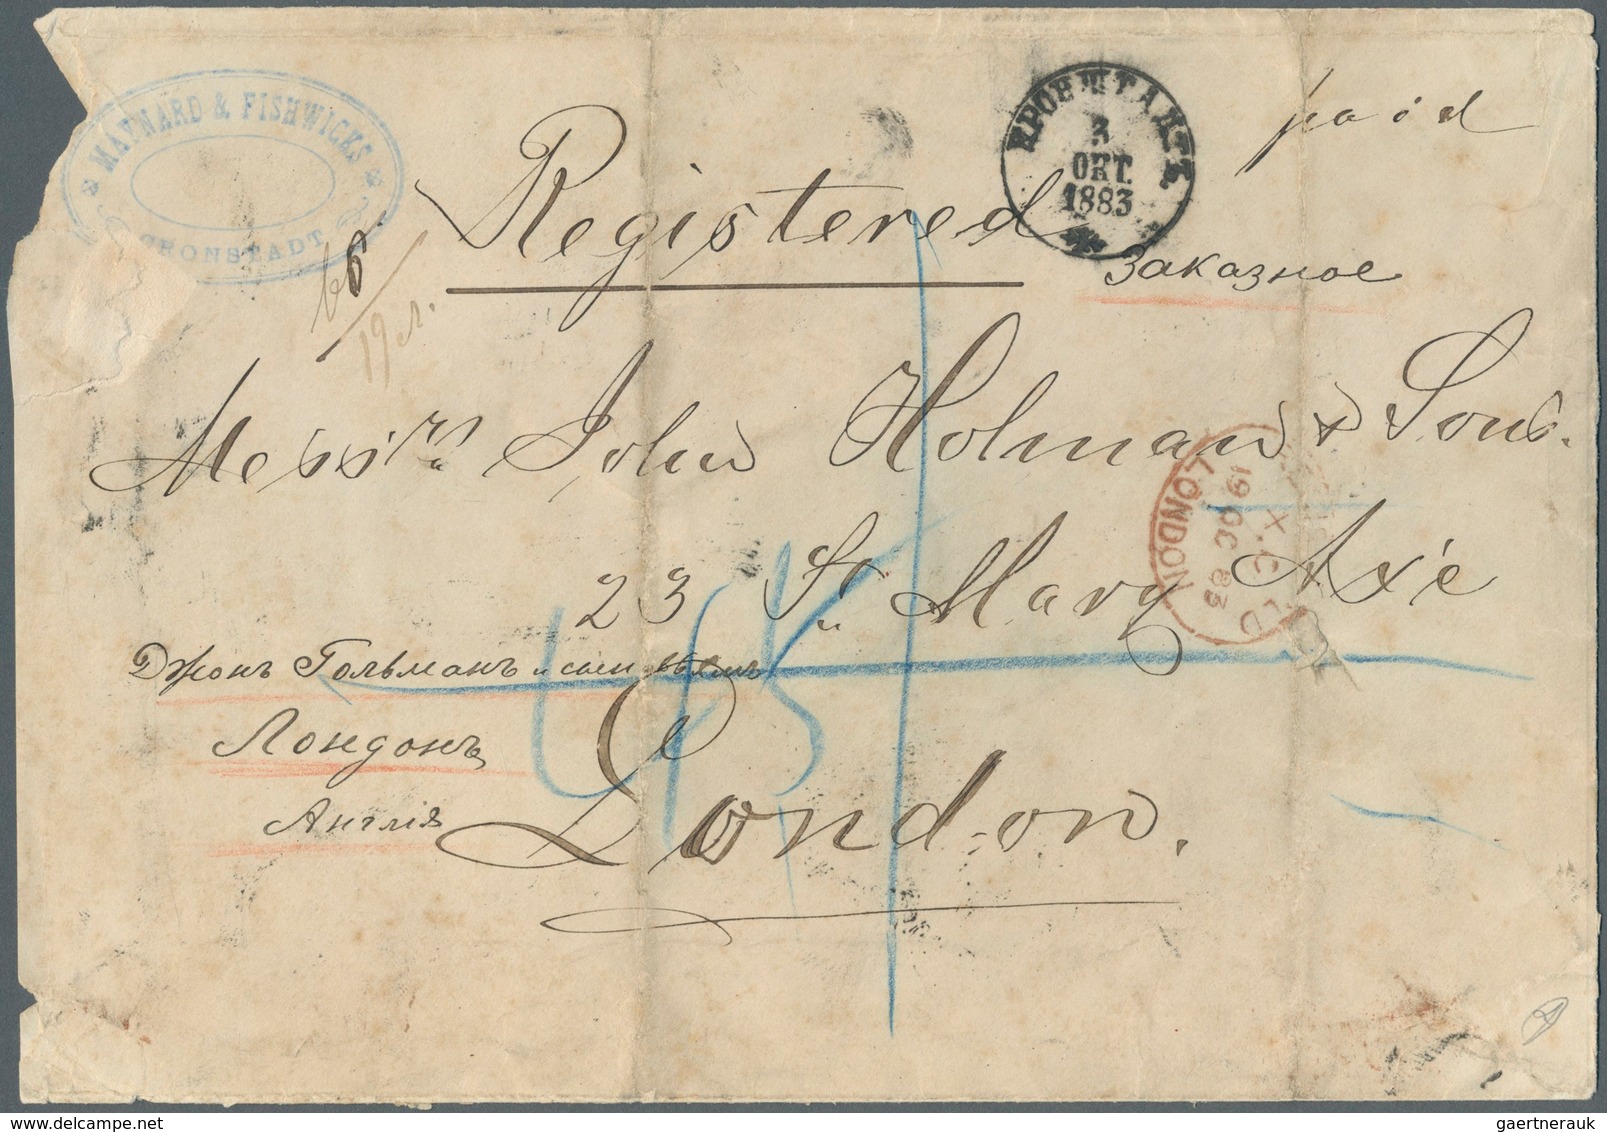 MAYNARD & FISHWICKS
CRONSTADT
КРОНШТАДТЪ
3
ОКТ.
1883
paid
Registered
Заказное
19 л.
Messrs. John Holman & Sons.
LONDON
19 OC 83
23 St. Mary Axe
Джонъ Гольманъ и
Лондонъ
Англія
London.
gaertnerauk